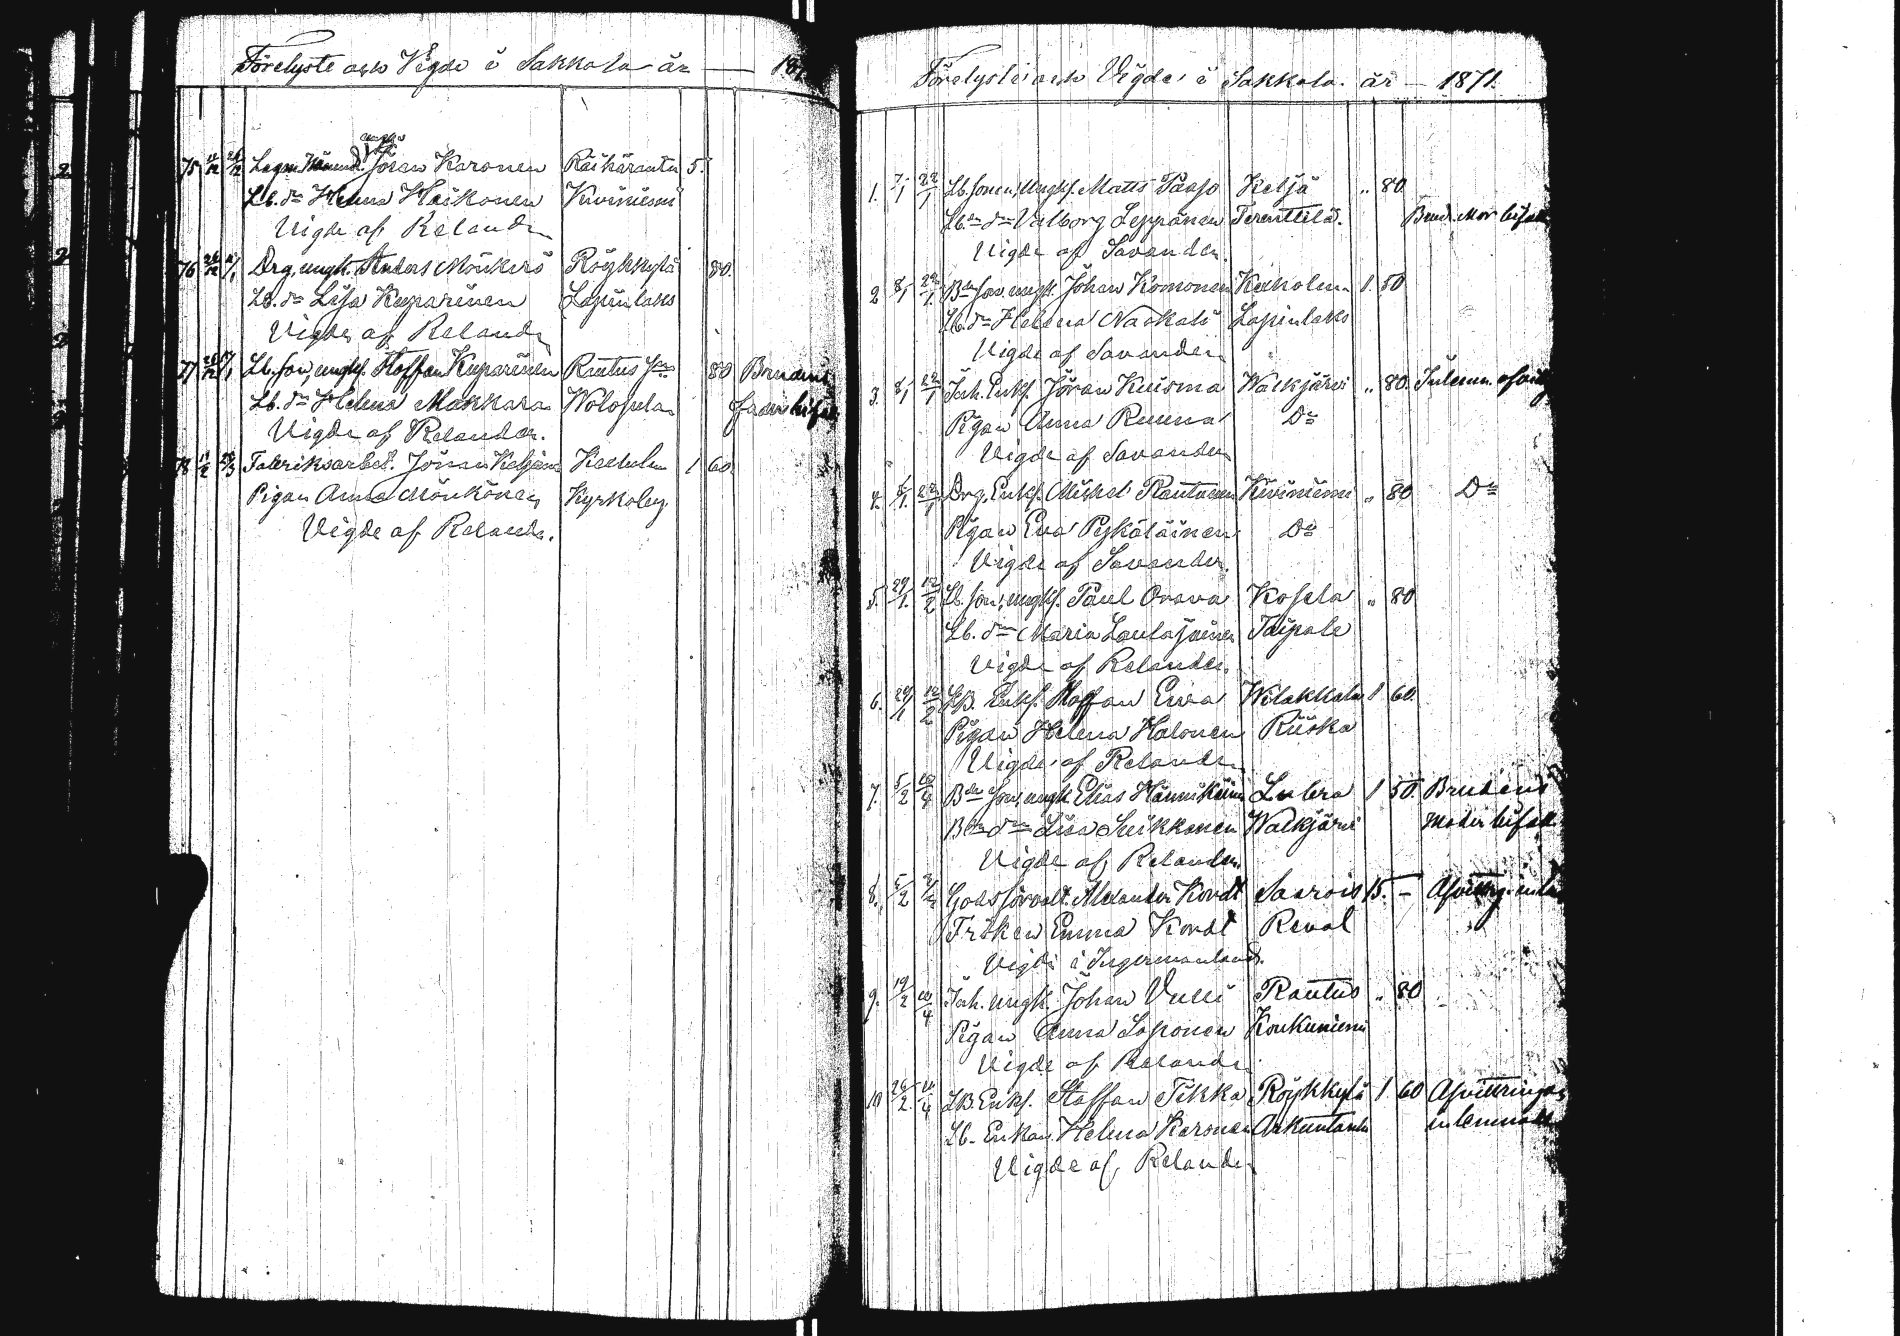 Förelyste och Vigde i Sakkola år — 18
75 11/12 26/12 Johan Karonen Räihäranta 5.
Lb. dr Helena Haikonen Kiviniemi
Vigde af Relander
76 26/12 Drg, ungk. Anders Mönkkö Röykkylä 80.
Lb. dr Lisa Kuparinen Lapinlaks
Vigde af Relander
77 Lb. son, ungk. Staffan Kuparinen Rautus 80 Brudens
Lb. dr Helena Makkara Woloxula fader bifall
Vigde af Relander.
78 Fabriksarbet. Johan Kexholm 1 60.
Pigan Anna Mönkönen Kyrkoby
Vigde af Relander.
Förelyste och Vigde i Sakkola år — 1871.
1. 7/1 22/1 Lb. sonen, Ungk. Matts Paajo Keljä „ 80
Lb. dr Valborg Leppänen Terenttilä. Brud. Mor bifall
Vigde af Savander.
2 8/1 22/1 Bde son, ungk. Johan Komonen Kexholm 1. 50
Lb. dr Helena Naskali Lapinlaks
Vigde af Savander
3. 8/1 22/1 Inh. Enkl. Jöran Kuisma Walkjärvi „ 80.
Pigan Anna Ruuna Do
Vigde af Savander
4. 22/1 Drg. Enkl. Michel Rautanen Kiviniemi „ 80 Do
Pigan Eva Pykäläinen Do
Vigde af Savander.
5. 29/1. 12/2 Lb. son, ungk. Paul Orava Kosela „ 80
Lb. dr Maria Taipale
Vigde af Relander.
6. 29/1 12/2 LB. Enkl. Staffan Ewa Wilakkala 1 60.
Pigan Helena Halonen Riiska
Vigde af Relander
7. 5/2 10/4 Bde son, ungk. Elias Hännikäinen Lubra 1 50. Brudens
Bde dr Lisa Suikkanen Walkjärvi moder bifall.
Vigde af Relander.
8. 5/2 Godsförvalt. Alexander Kordt Saarois 15. –
Fröken Emma Kordt Reval
Vigde i Ingermanland.
9. 19/2 10/4 Inh. ungk. Johan Vulli Rautus „ 80
Pigan Anna Loponen Koukuniemi
Vigde af Relander
10 26/2 10/4 LB. Enkl. Staffan Tikka Röykkylä 1 60 Afvittringen
Lb. Enkan Helena Karonen Arkuntanhu inlemnadt
Vigde af Relander